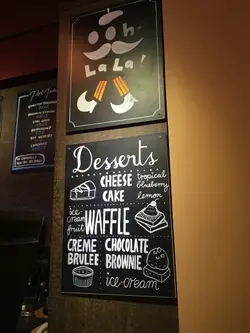 Ooh
La La!
Desserts
CHEESE
CAKE
tropical
blueberry
lemon
ice-
cream
fruit
WAFFLE
CRÈME
BRULEE
CHOCOLATE
BROWNIE
ice-cream